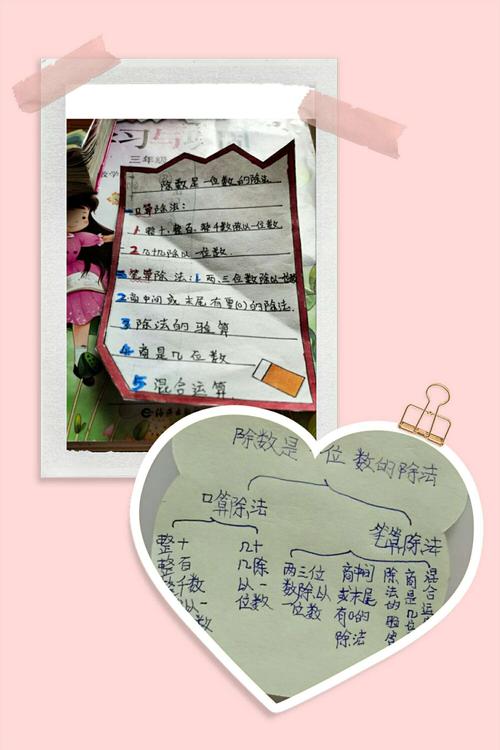 习与
三年级
数学
除数是一位数的除法
一口算除法:
1 整十、整百、整千数除以一位数
2 几十几除以一位数.
二笔算除法:1 两、三位数除以一位数
2.商中间或末尾有零(0)的除法.
3 除法的验算
4 商是几位数
5 混合运算.
除数是一位数的除法
口算除法
笔算除法
整十
整百
千数
以一
数
几十
几除
以一
位数
两三位
数除以
一位数
商中间
或末尾
有0的
除法
除法的验
商是几位
混合运